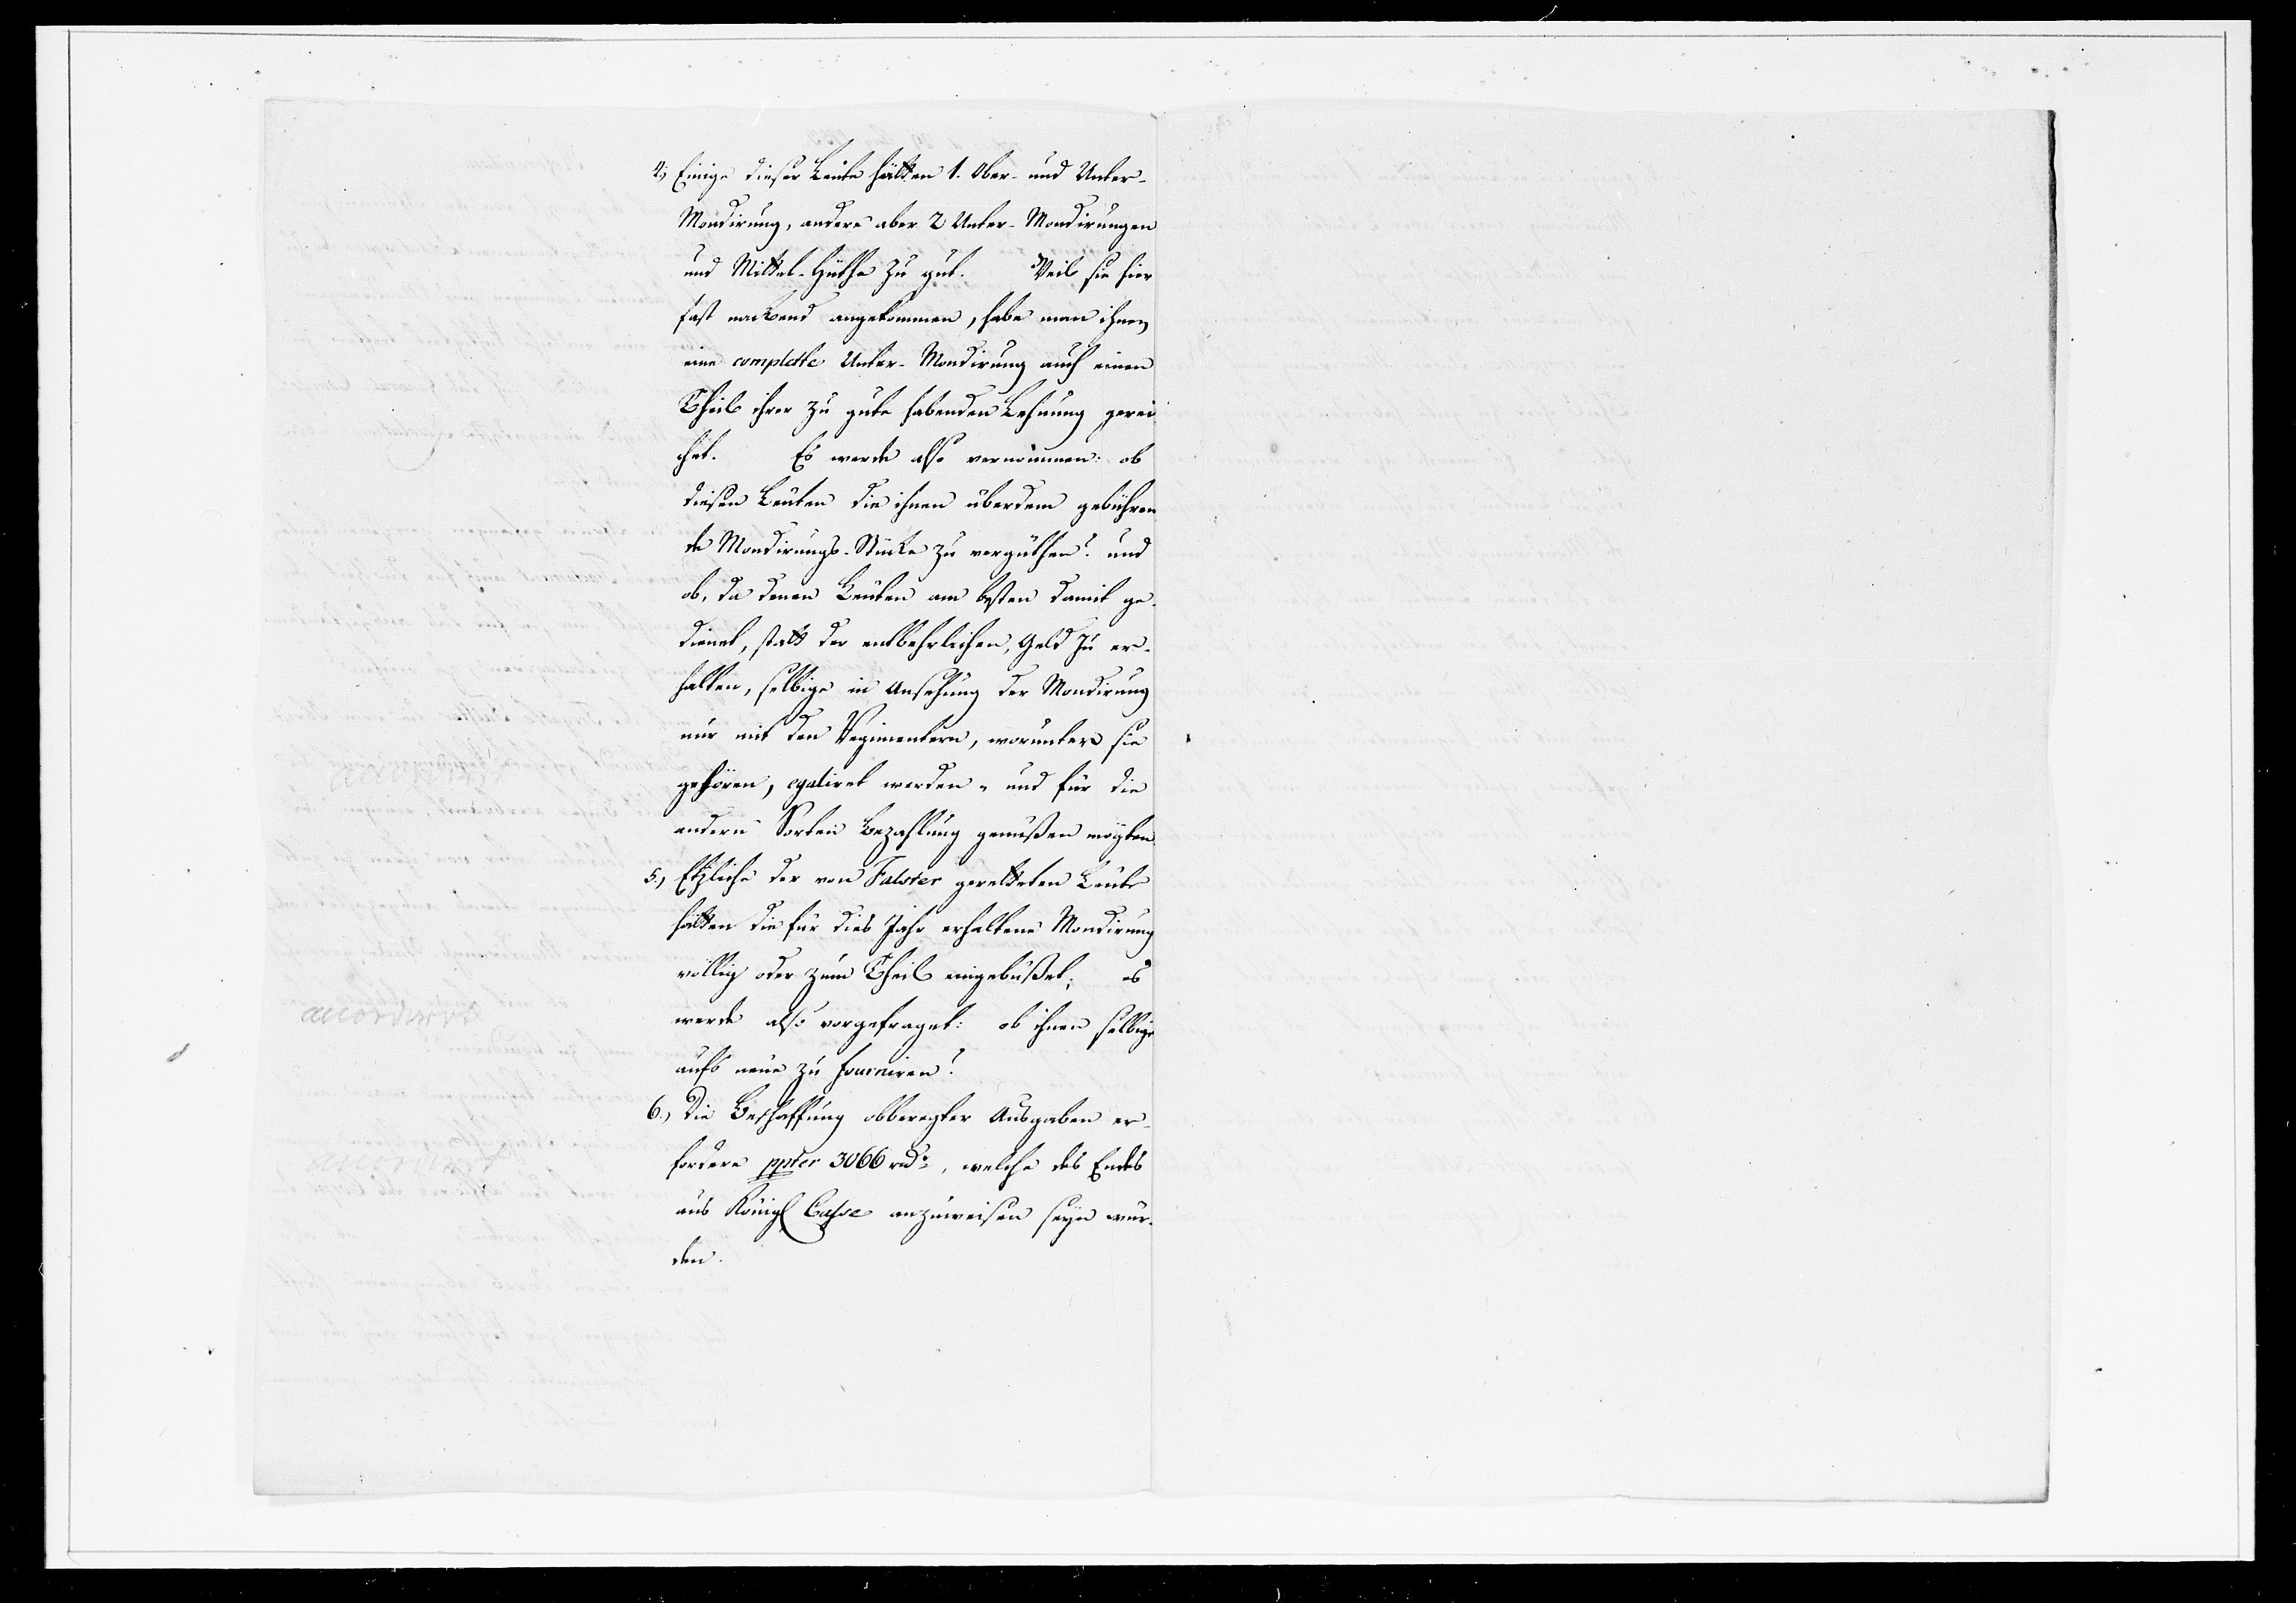 4., Einige dieser Leute hätten 1. Ober- und Unter-
Mondirung, andere aber 2 Unter-Mondirungen
und Mittel-Hüthe zu gut. Weil sie hier
fast nackend angekommen, habe man ihnen
eine complette Unter-Mondirung auch einen
Theil ihrer zu gute habenden Lehnung gerei-
chet. Es werde also vernommen: ob
diesen Leuten die ihnen überdem gebühren
de Mondirungs-Stücke zu vergüthen? und
ob, da denen Leuten am besten damit ge-
dienet, statt der entbehrlichen, Geld zu er-
halten, selbige in Ansehung der Mondirung
nur mit den Regimentern, worunter sie
gehören, egaliret werden, und für die
andern Sorten Bezahlung genießen mögten
5., Etzliche der von Falster geretteten Leute
hätten die für dies Jahr erhaltene Mondirung
völlig oder zum Theil eingebüßet; es
werde also vorgefraget: ob ihnen selbige
aufs neue zu fourniren?
6., Die Beschaffung obberegter Ausgaben er-
fordere ppter 3066 rd:, welche des Endes
aus Königl Casse anzuweisen seyn wür-
den.
accordiret